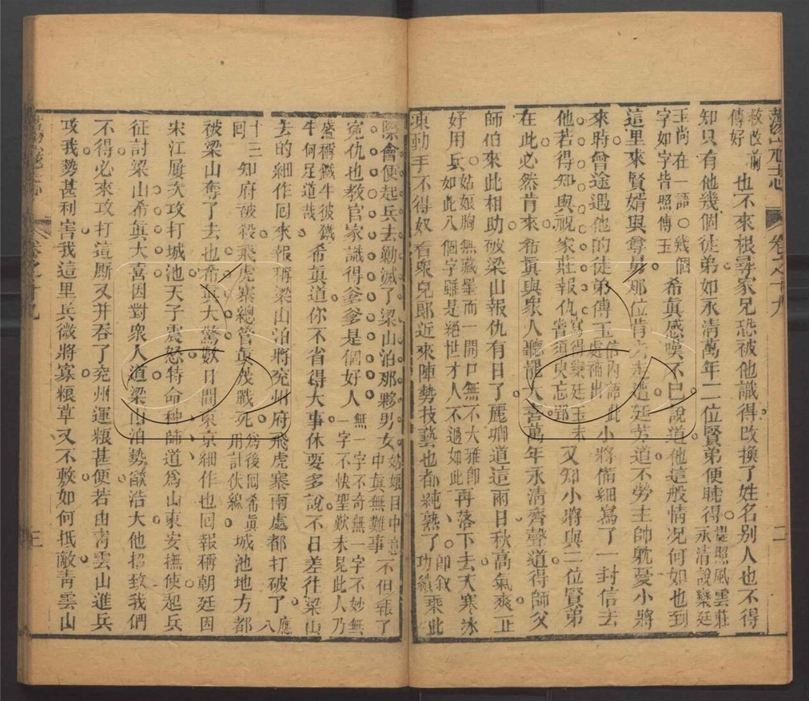 蕩寇志 卷之十九 二
傳好 也不來根尋家兄恐被他識得改換了姓名別人也不得
知只有他幾個徒弟如永清萬年二位賢弟便睡得
王尚在一語○幾個字如字皆照傳玉 希真感嘆不已說道他這般情况何如也到
這里來賢婿與尊舅那位肯去走遭廷芳道不勞主師躭憂小將
來時曾途遇他的徒弟傳玉 小將備細寫了一封信去
他若得知與祝家莊報仇 又知小將與二位賢弟
在此必然肯來希真與眾人聽罷大喜萬年永清齊聲道得師父
師伯來此相助破梁山報仇有日了麗卿道這兩日秋高氣爽正
好用兵 如此八個字雖是絕世才人不過如此 再落下去天寒冰
凍動手不得奴看眾兒郎近來陣勢技藝也都純熟了 功績乘此
際會便起兵去勦滅了梁山泊那夥男女 不但報了
冤仇也教官家識得爹爹是個好人 無一字不奇無一字不妙無一字不快聖歎未見此人乃
牛何足道哉 希真道你不省得大事休要多說不日差往梁山
去的細作回來報稱梁山泊將兗州府飛虎寨兩處都打破了 應八
十三回 知府被殺飛虎寨總管真茂戰死 為後回希真用計伏線 城池地方都
被梁山奪了去也希真大驚數日間東京細作也回報稱朝廷因
宋江屢次攻打城池天子震怒特命种師道為山東安撫使起兵
征討梁山希真大喜因對眾人道梁山泊勢燄浩大他招致我們
不得必來攻打這厮又并吞了兗州運粮甚便若由青雲山進兵
攻我勢甚利害我這里兵微將寡粮草又不敷如何抵敵青雲山
蕩寇志 卷之十九 三